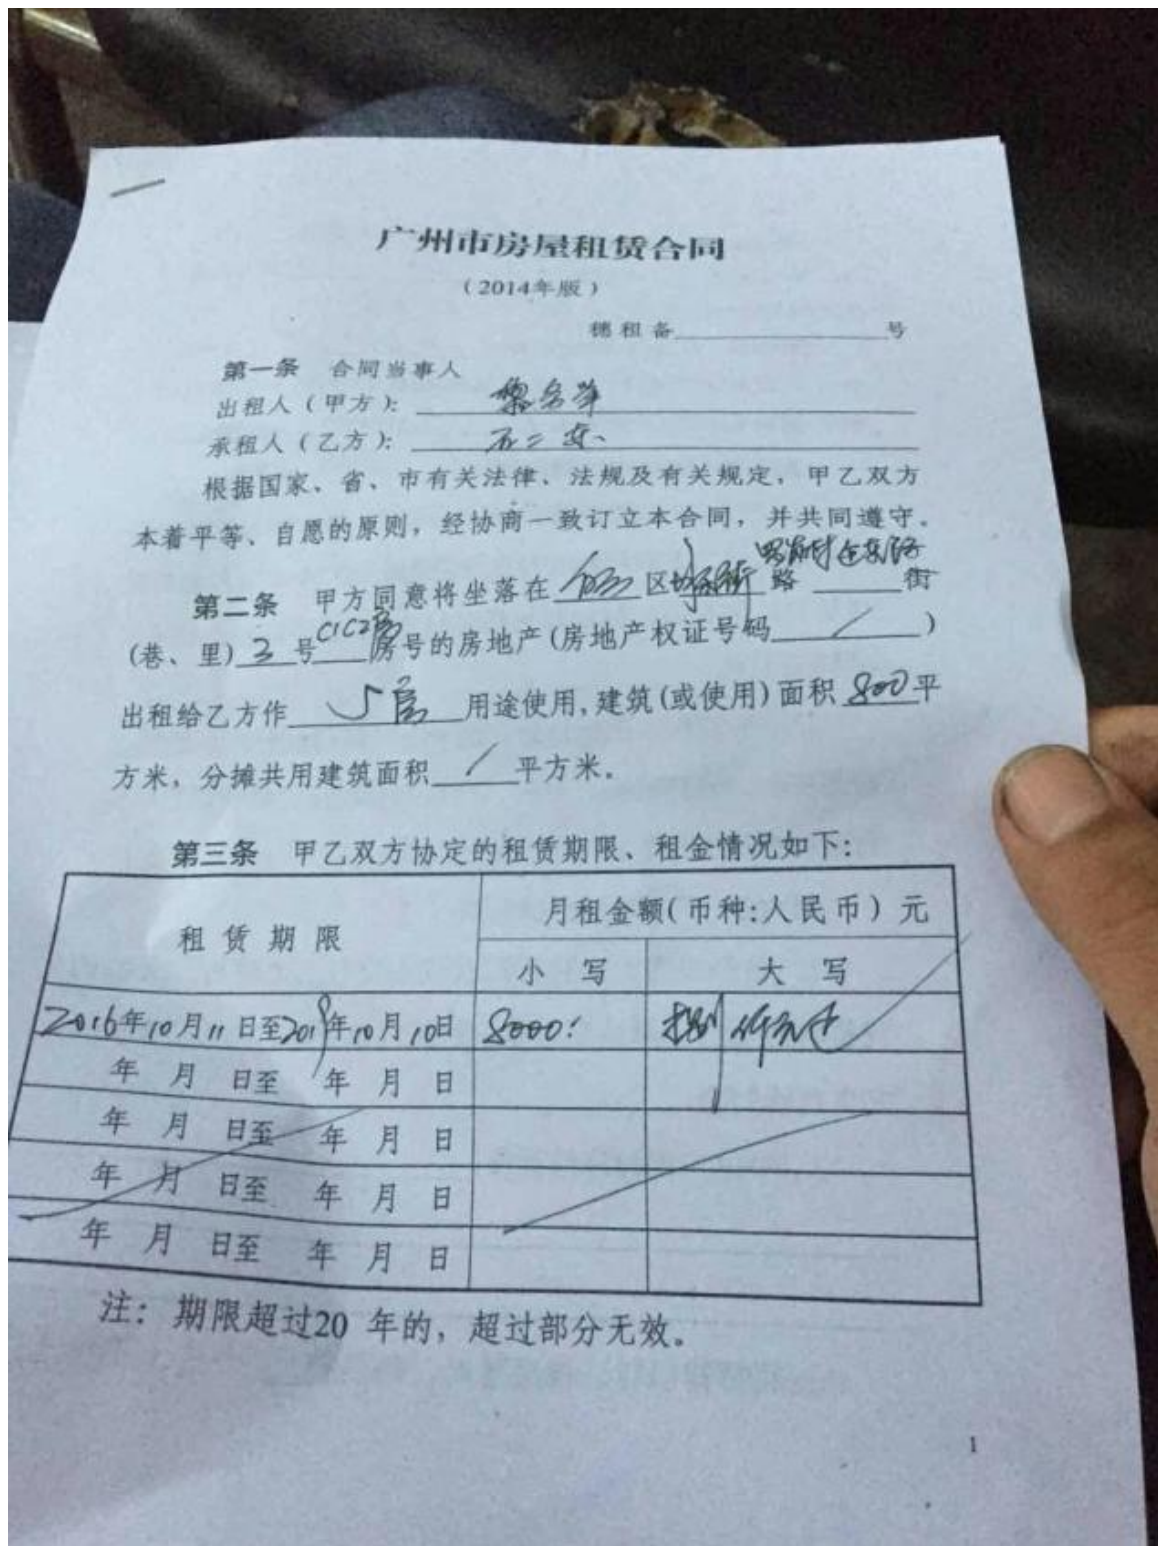 广州市房屋租赁合同
（2014年版）
穗租备 号
第一条 合同当事人
出租人（甲方）：
承租人（乙方）：
根据国家、省、市有关法律、法规及有关规定，甲乙双方
本着平等、自愿的原则，经协商一致订立本合同，并共同遵守。
第二条 甲方同意将坐落在 区 路 街
(巷、里) 3 号 C1C2 房号的房地产(房地产权证号码 / )
出租给乙方作 用途使用,建筑(或使用)面积 800 平
方米，分摊共用建筑面积 / 平方米。
第三条 甲乙双方协定的租赁期限、租金情况如下：
租赁期限 月租金额(币种:人民币) 元
小写 大写
2016年10月11日至2019年10月10日 8000: 捌仟元正
年 月 日至 年 月 日
年 月 日至 年 月 日
年 月 日至 年 月 日
年 月 日至 年 月 日
注：期限超过20 年的，超过部分无效。
1